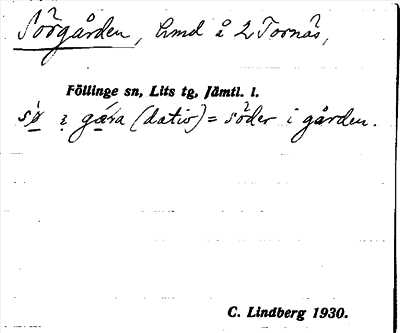 Sörgården, hmd å 2 Tornäs,
Föllinge sn, Lits tg, Jämtl. l.
(dativ) = söder i gården.
C. Lindberg 1930.